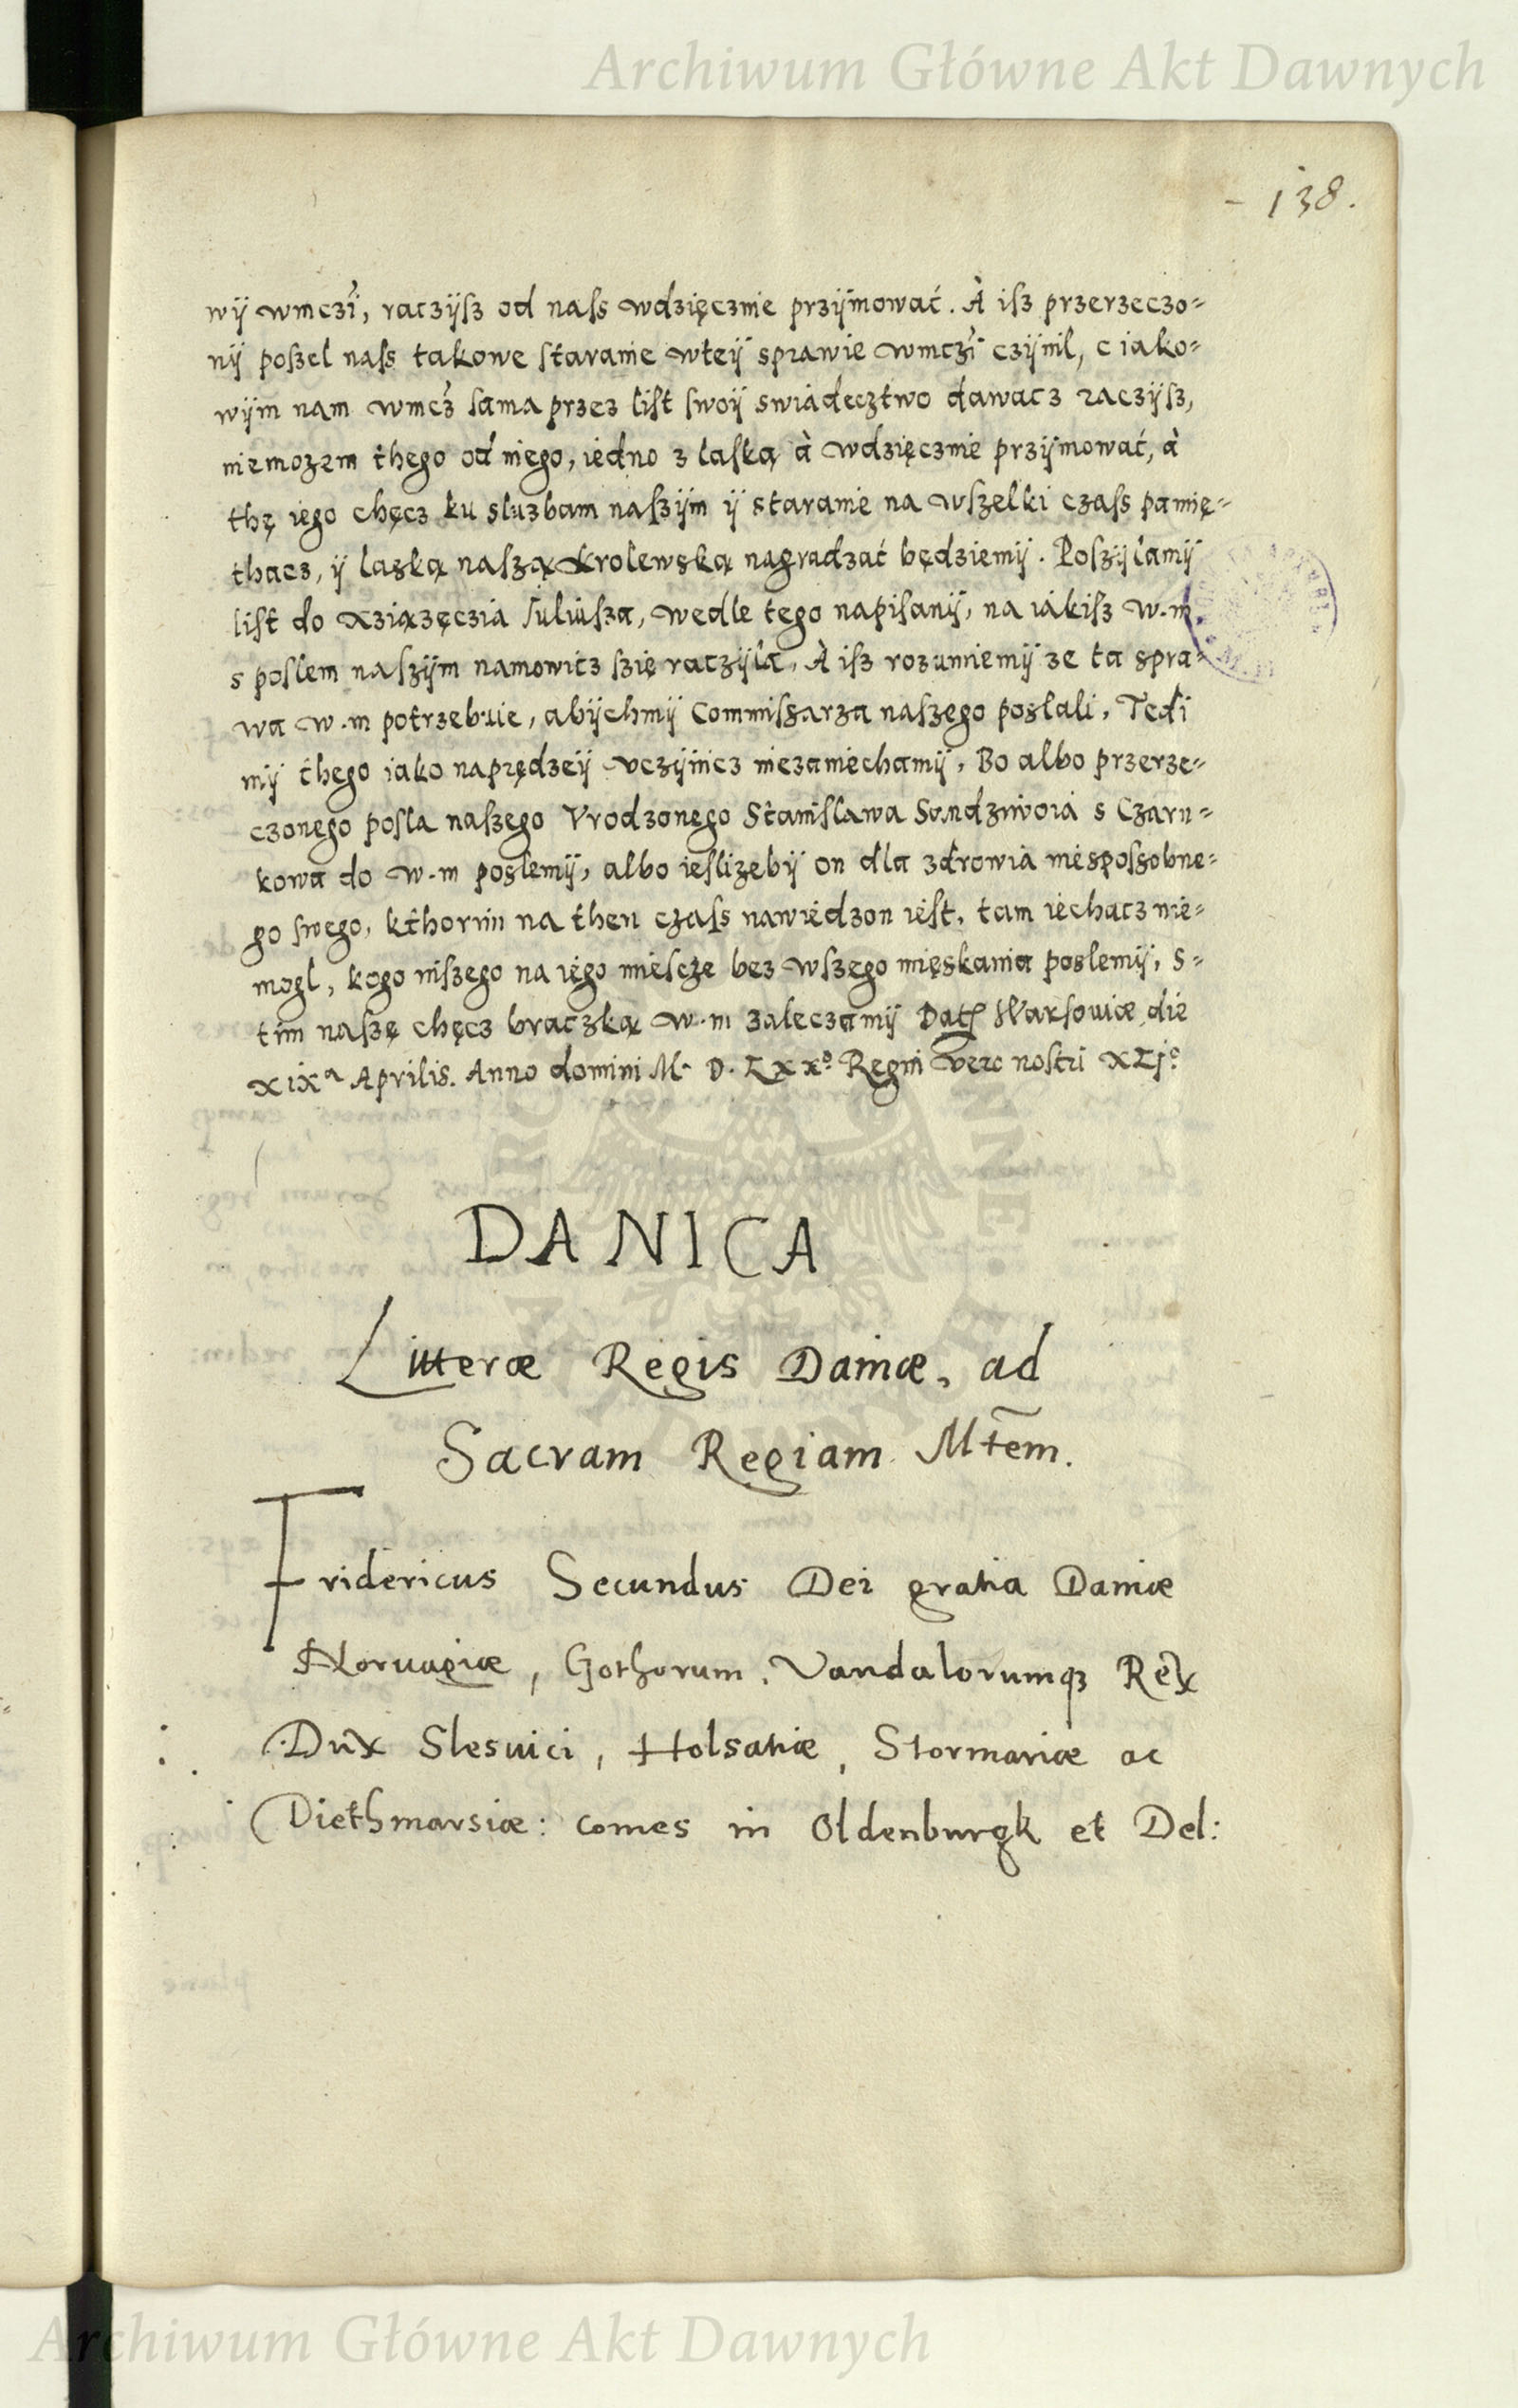 Archiwum Główne Akt Dawnych
- 138.
wÿ wmczi, raczÿsz od nass wdzięcznie przÿmowáć. À isz przerzeczo=
nÿ poszel nass takowe staranie wteÿ sprawie wmczi czÿnil, o iako=
wÿm nam wmcz sama przez list swoÿ swiádecztwo dawacz raczÿsz,
niemozem thego od niego, iedno z laską à wdzięcznie przÿmowáć, à
thę iego chęcz ku sluzbam naszÿm ÿ staranie na wszelki czass pamię=
thacz, ÿ laską naszą Krolewską nagradzáć będziemÿ. Poszÿlamÿ
list do xziązęczia Juliusza, wedle tego napisanÿ, na iákisz w.m
s poslem naszÿm namowicz szię raczÿla, À isz rozumiemÿ ze ta spra=
wa w.m potrzebuie, abÿchmÿ Commissarza naszego poslali, Tedi
mÿ thego iako naprędzeÿ vczÿnicz niezaniechamÿ, Bo albo przerze=
czonego posla naszego Vrodzonego Stanislawa Sandziwoia s Czarn=
kowa do w.m poslemÿ, albo ieslizebÿ on dla zdrowia niesposobne=
go swego, kthorim na then czass nawiédzon iest, tam iéchacz nie=
mogl, kogo inszego na iégo miescze bez wszego mięskania poslemÿ, S=
tim naszę chęcz braczką w.m zaleczamÿ Dat Warsouiæ die
xixa Aprilis. Anno domini M. D. Lxxo. Regni vero nostri xLjo.
DANICA
Litteræ Regis Daniæ, ad
Sacram Regiam Mtem.
Fridericus Secundus Dei gratia Daniæ
Noruagiæ, Gothorum, Vandalorumq3 Rex
Dux Slesuici, Holsatiæ, Stormariæ ac
Diethmarsiæ: comes in Oldenburgk et Del:
Archiwum Główne Akt Dawnych